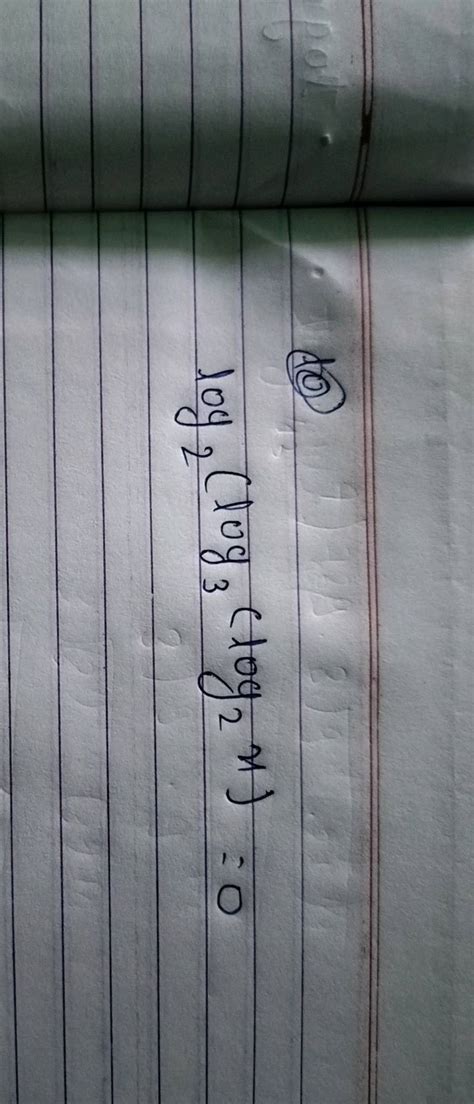 10
log₂(log₃(log₂ x) = 0